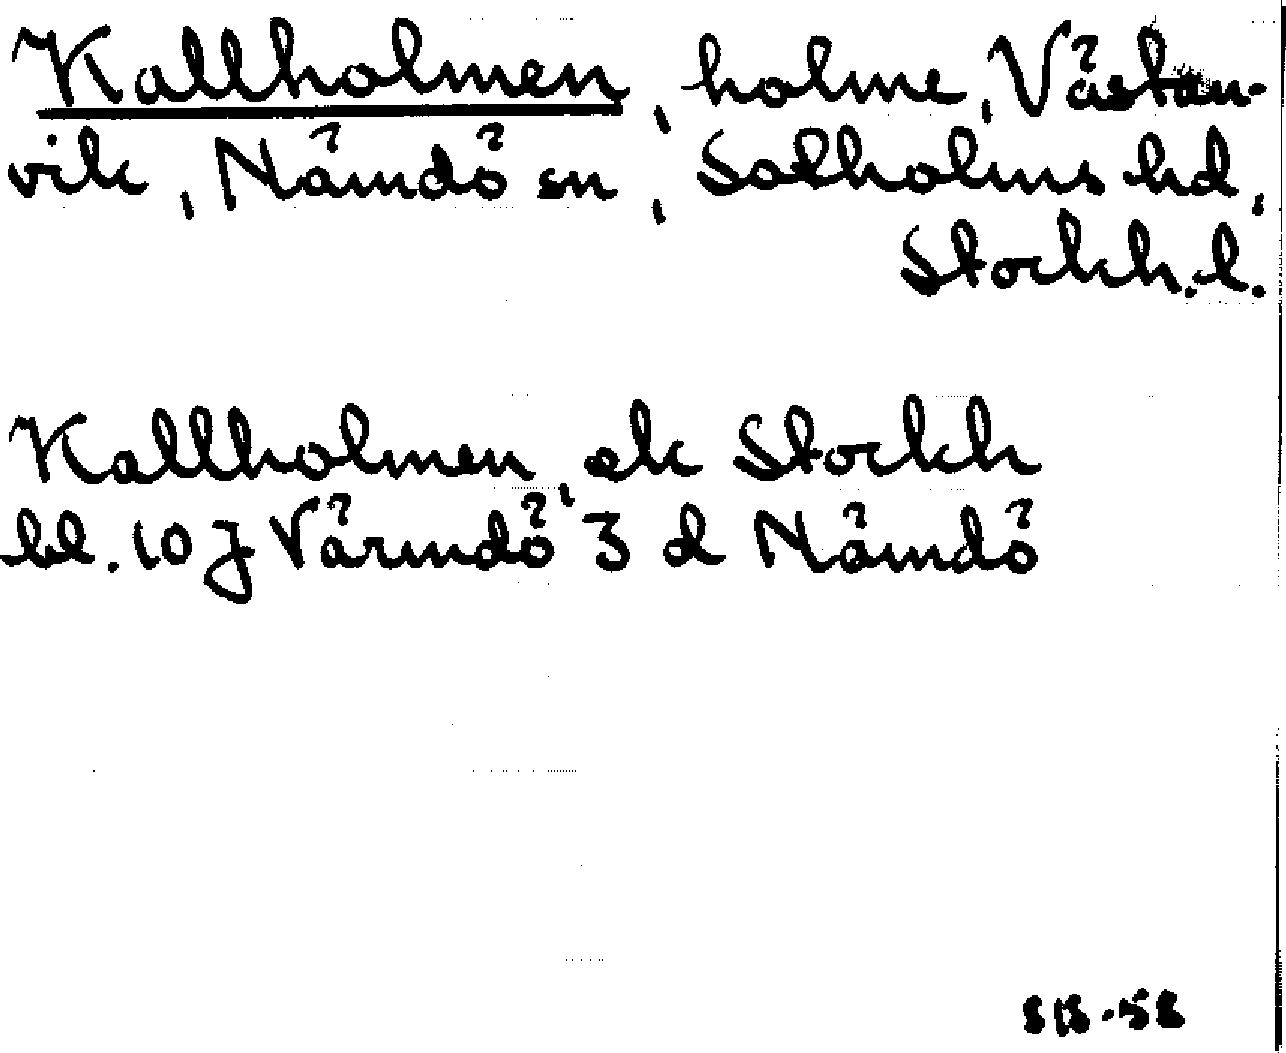 Kallholmen, holme, Västan-
vik, Nämdö sn, Solholms hd,
Stockh. l.
Kallholmen, ek Stockh
bl. 10 J Värmdö 3 d Nämdö